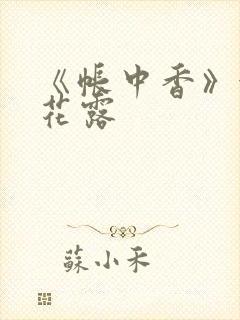 《帳中香》
花露
蘇小禾